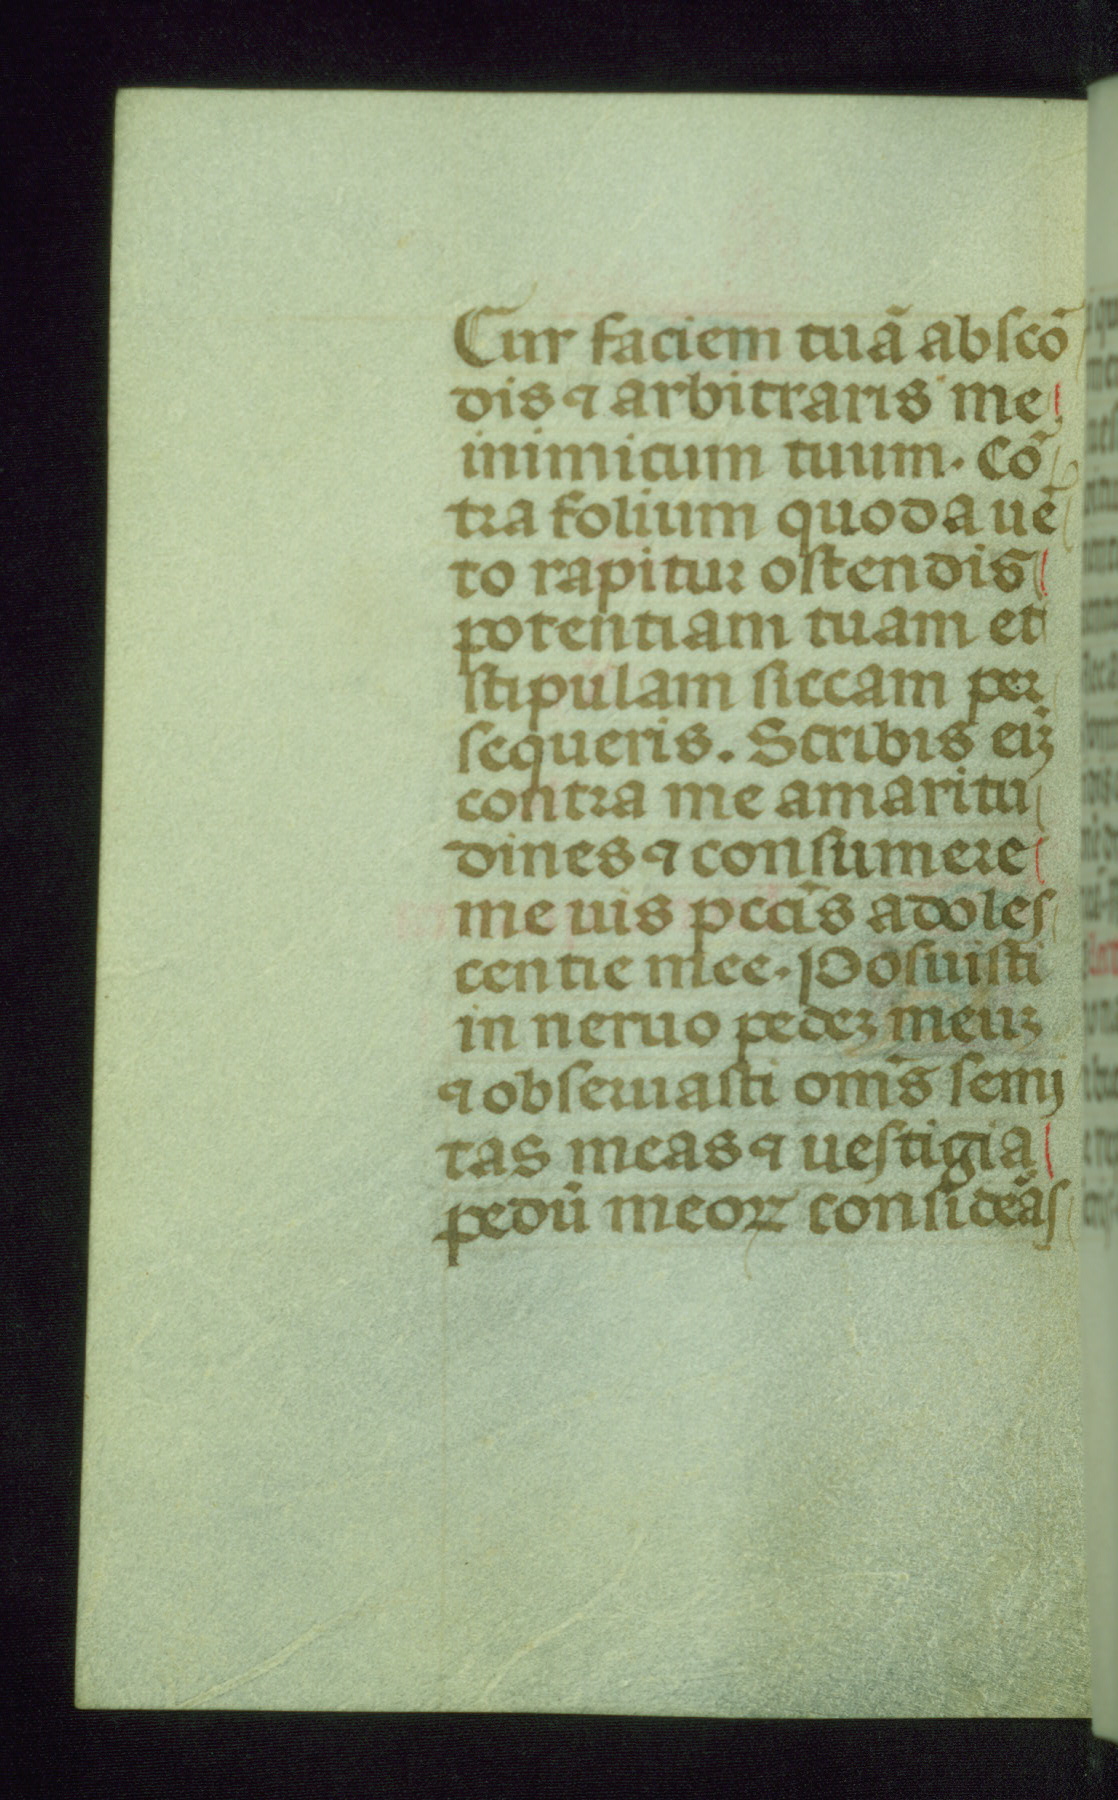 Cur faciem tuã abscõ
dis ⁊ arbitraris me
inimicum tuum. Cõ
tra folium quod a uẽ
to rapitur ostendis
potentiam tuam et
stipulam siccam per
sequeris. Scribis eiꝫ
contra me amaritu
dines ⁊ consumere
me uis pcctĩs adoles
centie mee. Posuisti
in neruo pedeꝫ meuꝫ
⁊ obseruasti om̃s semj
tas meas ⁊ uestigia
pedũ meoꝝ consideãs